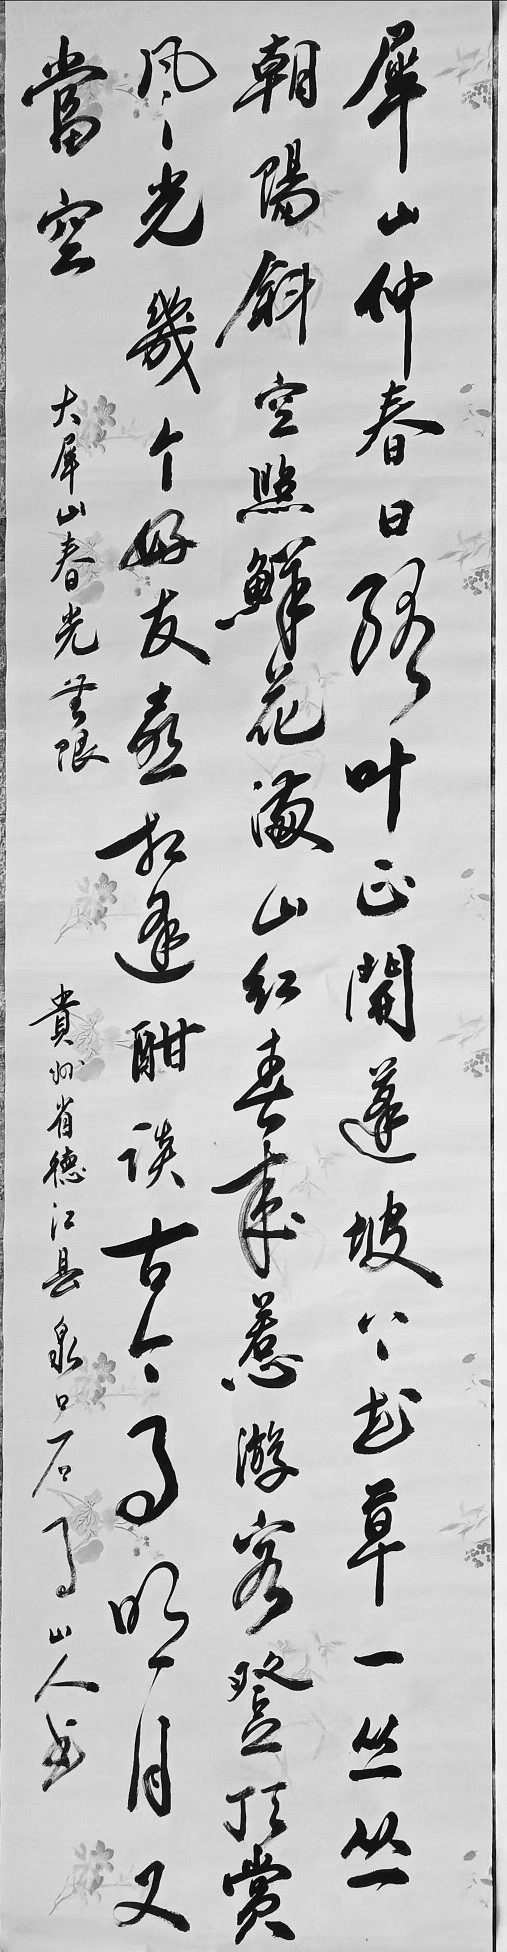 犀山仲春日绿叶正開蓬坡〻花草一丛丛
朝陽斜空照鮮花满山红春来惹游客登顶赏
风〻光幾个好友喜相逢酣谈古今〻事明月又
當空
大犀山春光無限
貴州省德江县泉口石马山人书